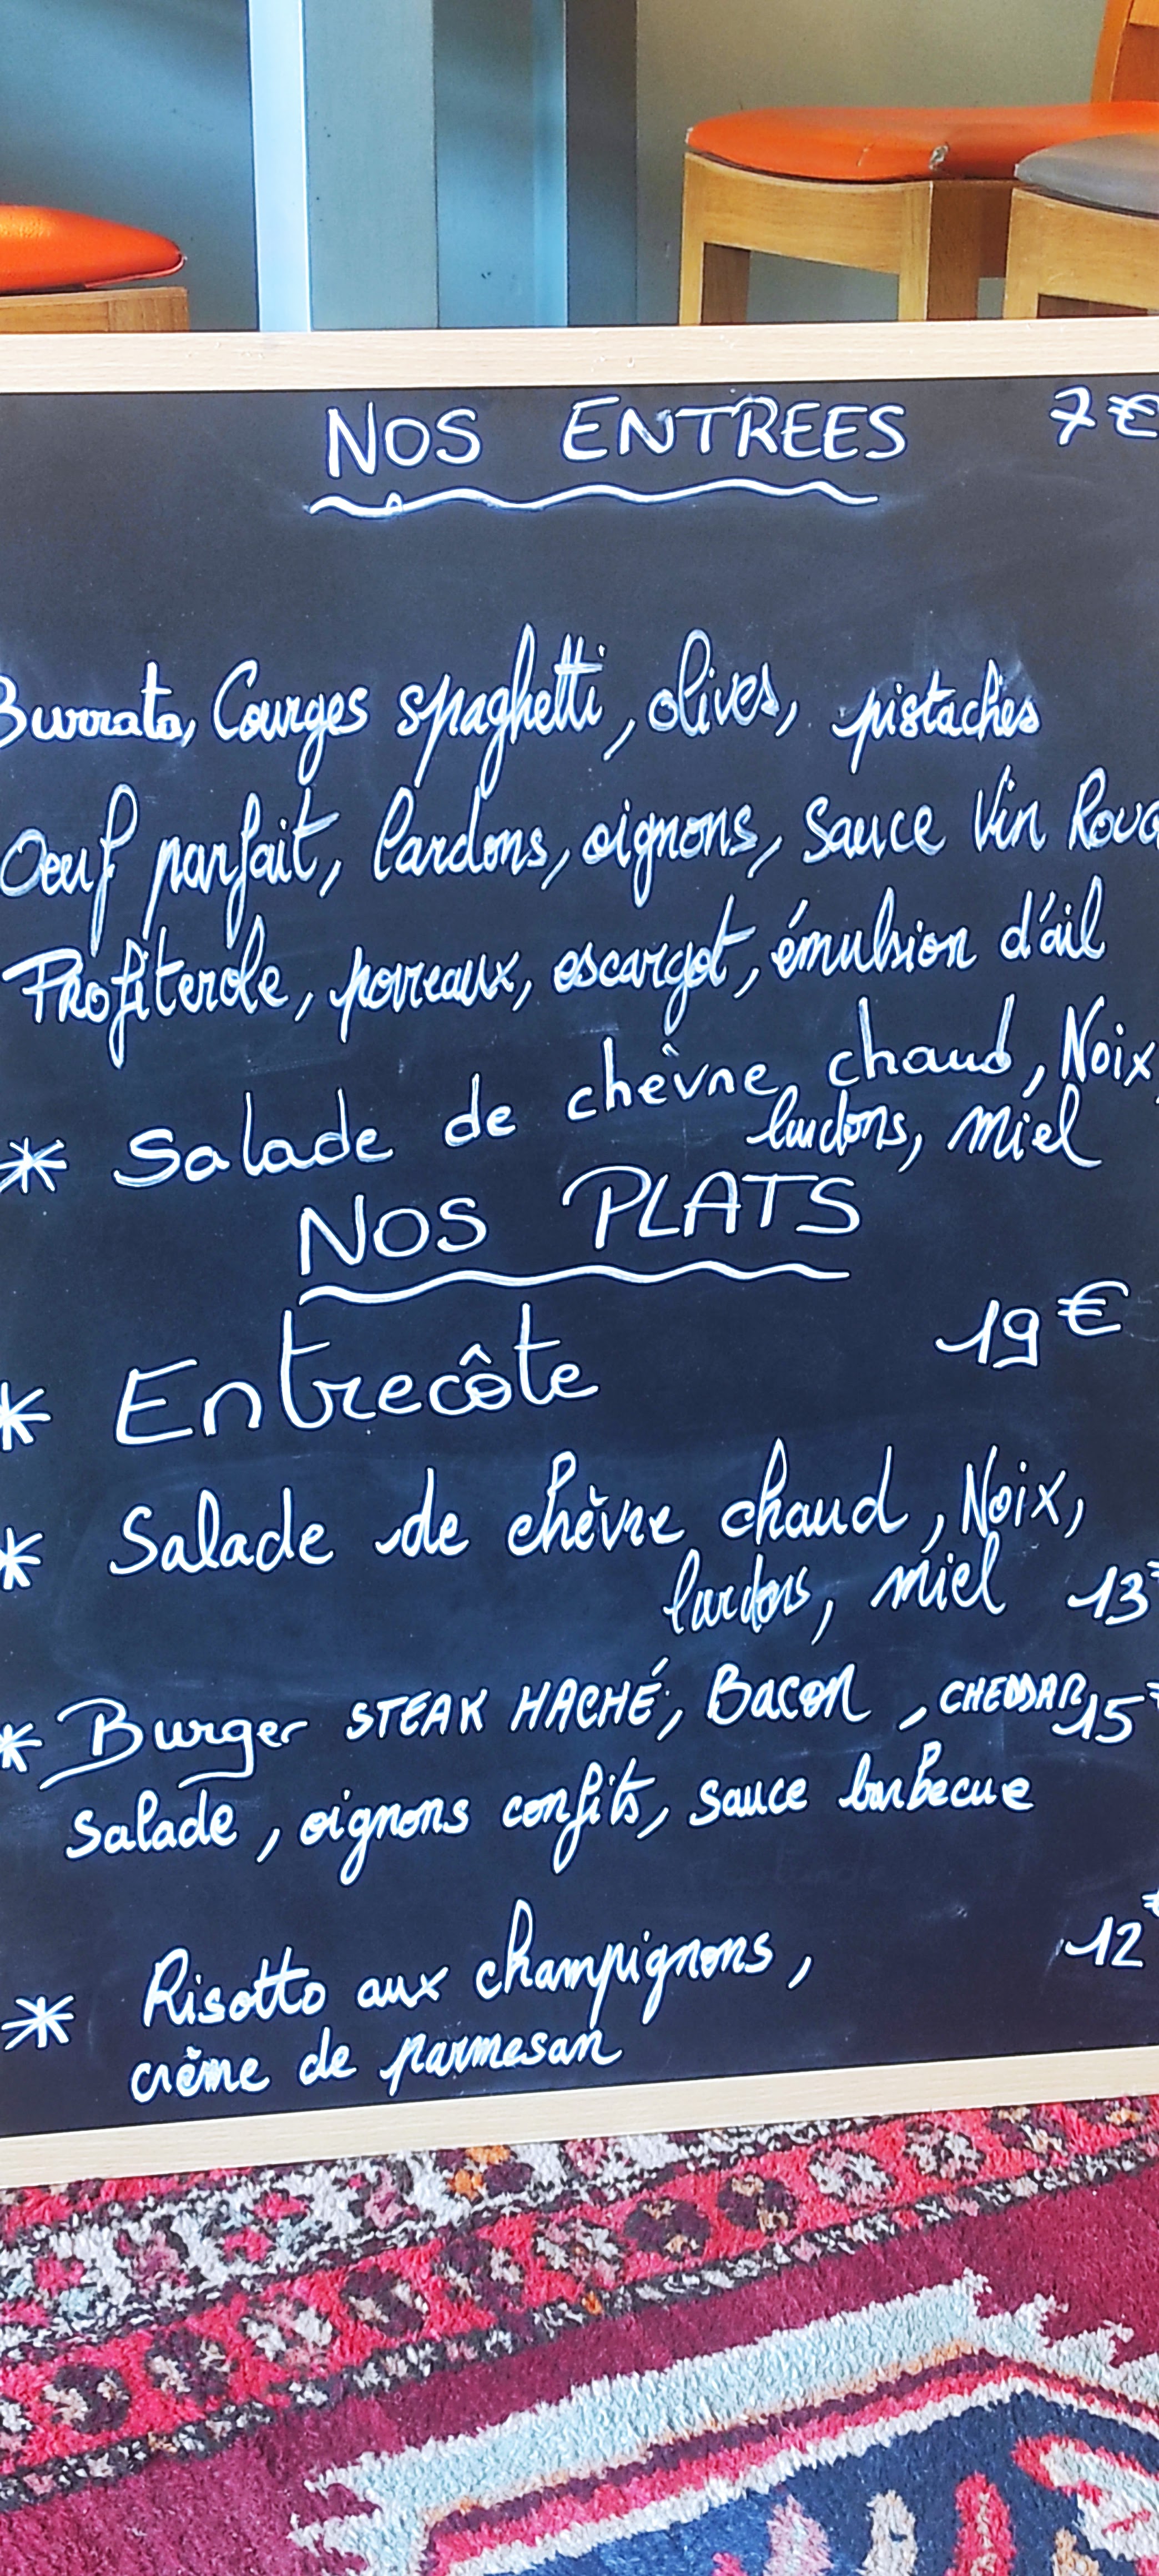 NOS ENTREES 7€
Burrata, Courges spaghetti, olives, pistaches
Oeuf parfait, lardons, oignons, Sauce Vin Roug
Profiterole, poireaux, escargot, émulsion d'ail
* Salade de chèvre chaud, Noix,
lardons, miel
NOS PLATS
* Entrecôte 19€
* Salade de chèvre chaud, Noix,
lardons, miel 13€
* Burger STEAK HACHÉ, Bacon, CHEDDAR, 15€
Salade, oignons confits, sauce barbecue
* Risotto aux champignons, 12€
crème de parmesan